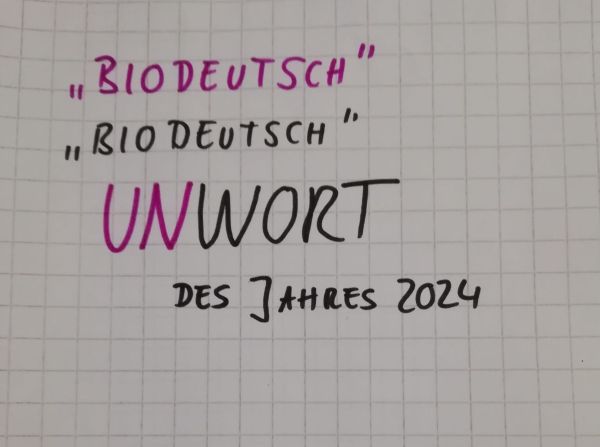 „BIODEUTSCH"
„BIODEUTSCH"
UNWORT
DES JAHRES 2024